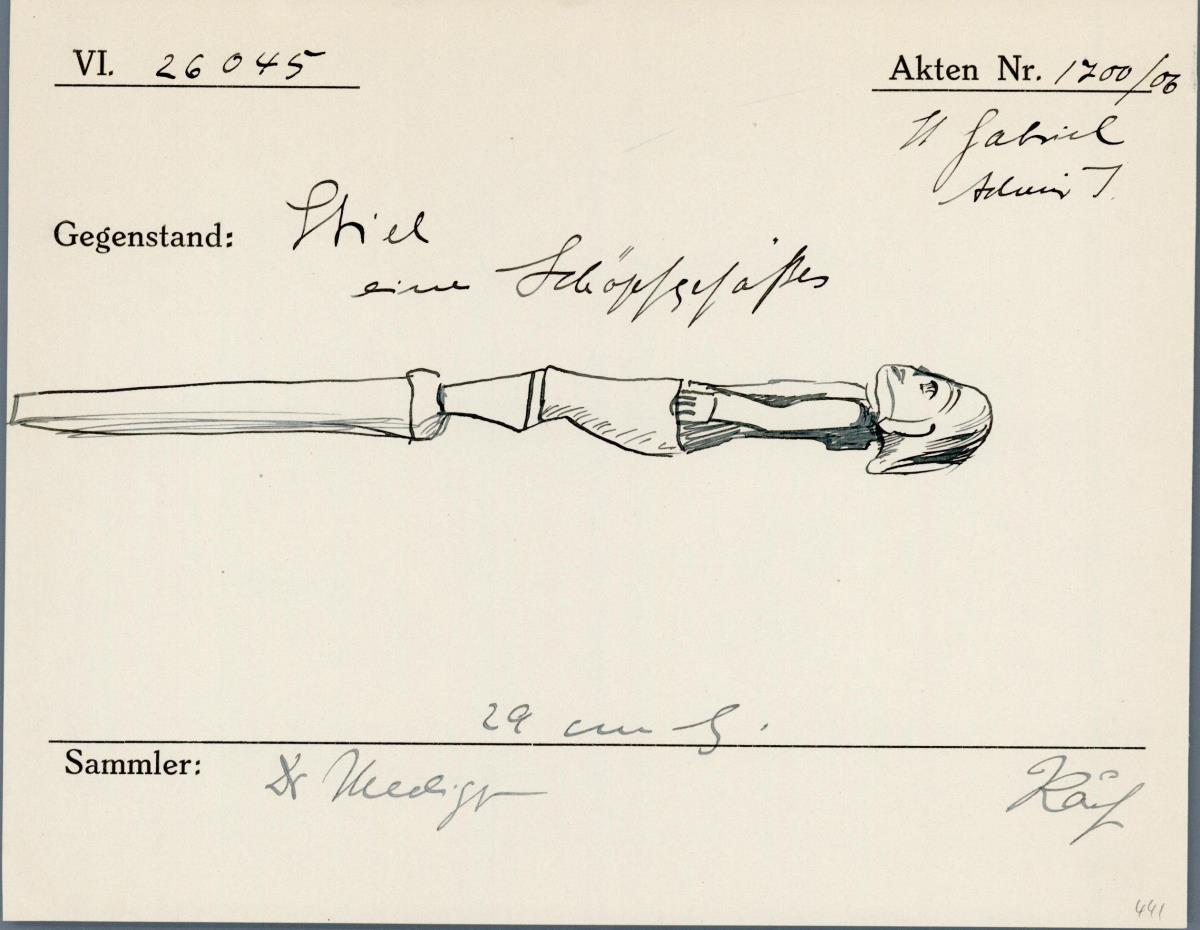 VI. 26045
Akten Nr. 1700/06
St Gabriel
Admir. I.
Gegenstand: Stiel
eines Schöpfgefäßes
29 cm lg.
Sammler: Dr
Käuf
441